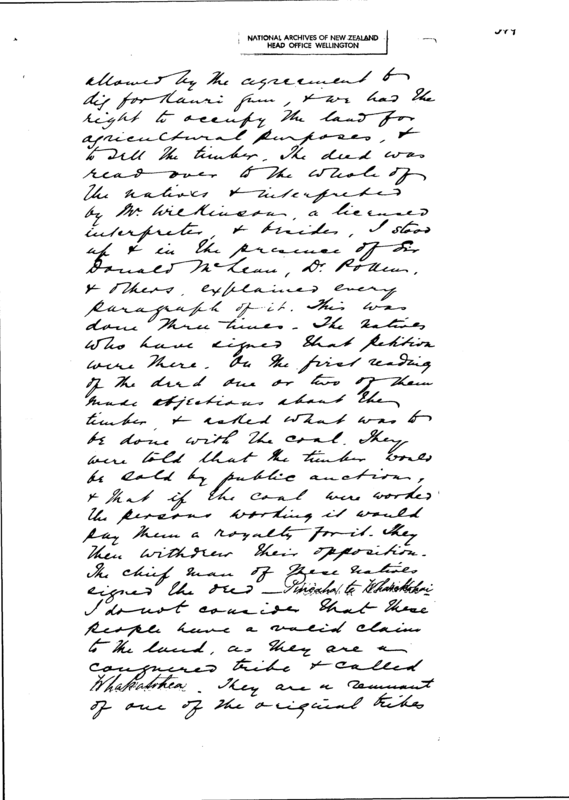 NATIONAL ARCHIVES OF NEW ZEALAND
HEAD OFFICE WELLINGTON
allowed by the agreement to
dig for Kauri gum, & we had the
right to occupy the land for
agricultural purposes, &
to sell the timber. The deed was
read over to the whole of
the natives & interpreted
by Mr Wilkinson, a licensed
interpreter, & besides, I stood
up & in the presence of Sir
Donald McLean, Dr Pollen,
& others, explained every
paragraph of it. This was
done three times. The natives
who have signed that petition
were there. On the first reading
of the deed one or two of them
made objections about the
timber, & asked what was to
be done with the coal. They
were told that the timber would
be sold by public auction,
& that if the coal were worked
the persons working it would
pay them a royalty for it. They
then withdrew their opposition.
The chief man of these natives
signed the deed — te
I do not consider that these
people have a valid claim
to the land, as they are a
conquered tribe & called
Whakatohea. They are a remnant
of one of the original tribes